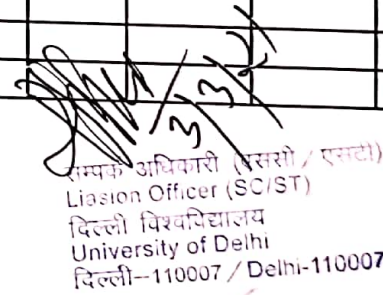 सम्पर्क अधिकारी (एससी / एसटी)
Liasion Officer (SC/ST)
दिल्ली विश्वविद्यालय
University of Delhi
दिल्ली-110007 / Delhi-110007